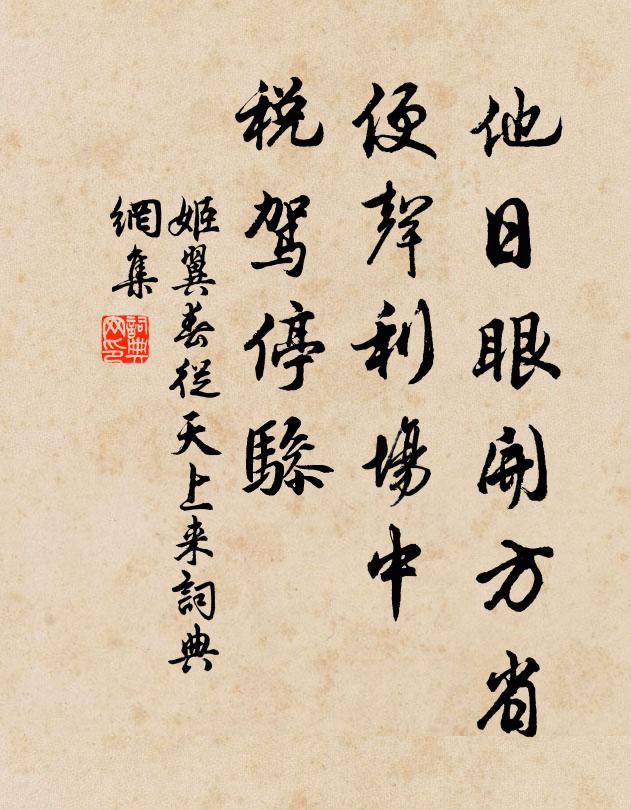 他日眼開方省
便聲利場中
税駕停驂
姬翼春從天上来詞典
網集
詞典
网印